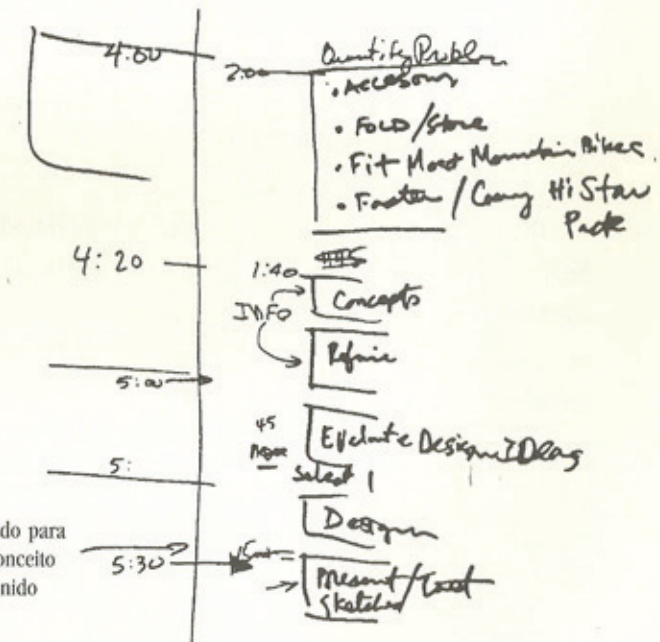 4:00
2:00
Quantify Problem
• Accessory
• FOLD/Store
• Fit Most Mountain Bikes
• Fasten / Carry Hi Star
Pack
4:20
1:40
INFO
Concepts
Refine
5:00
45
Evaluate Design IDeas
5:
Select 1
Design
do para
onceito
nido
5:30
Present/
Sketches